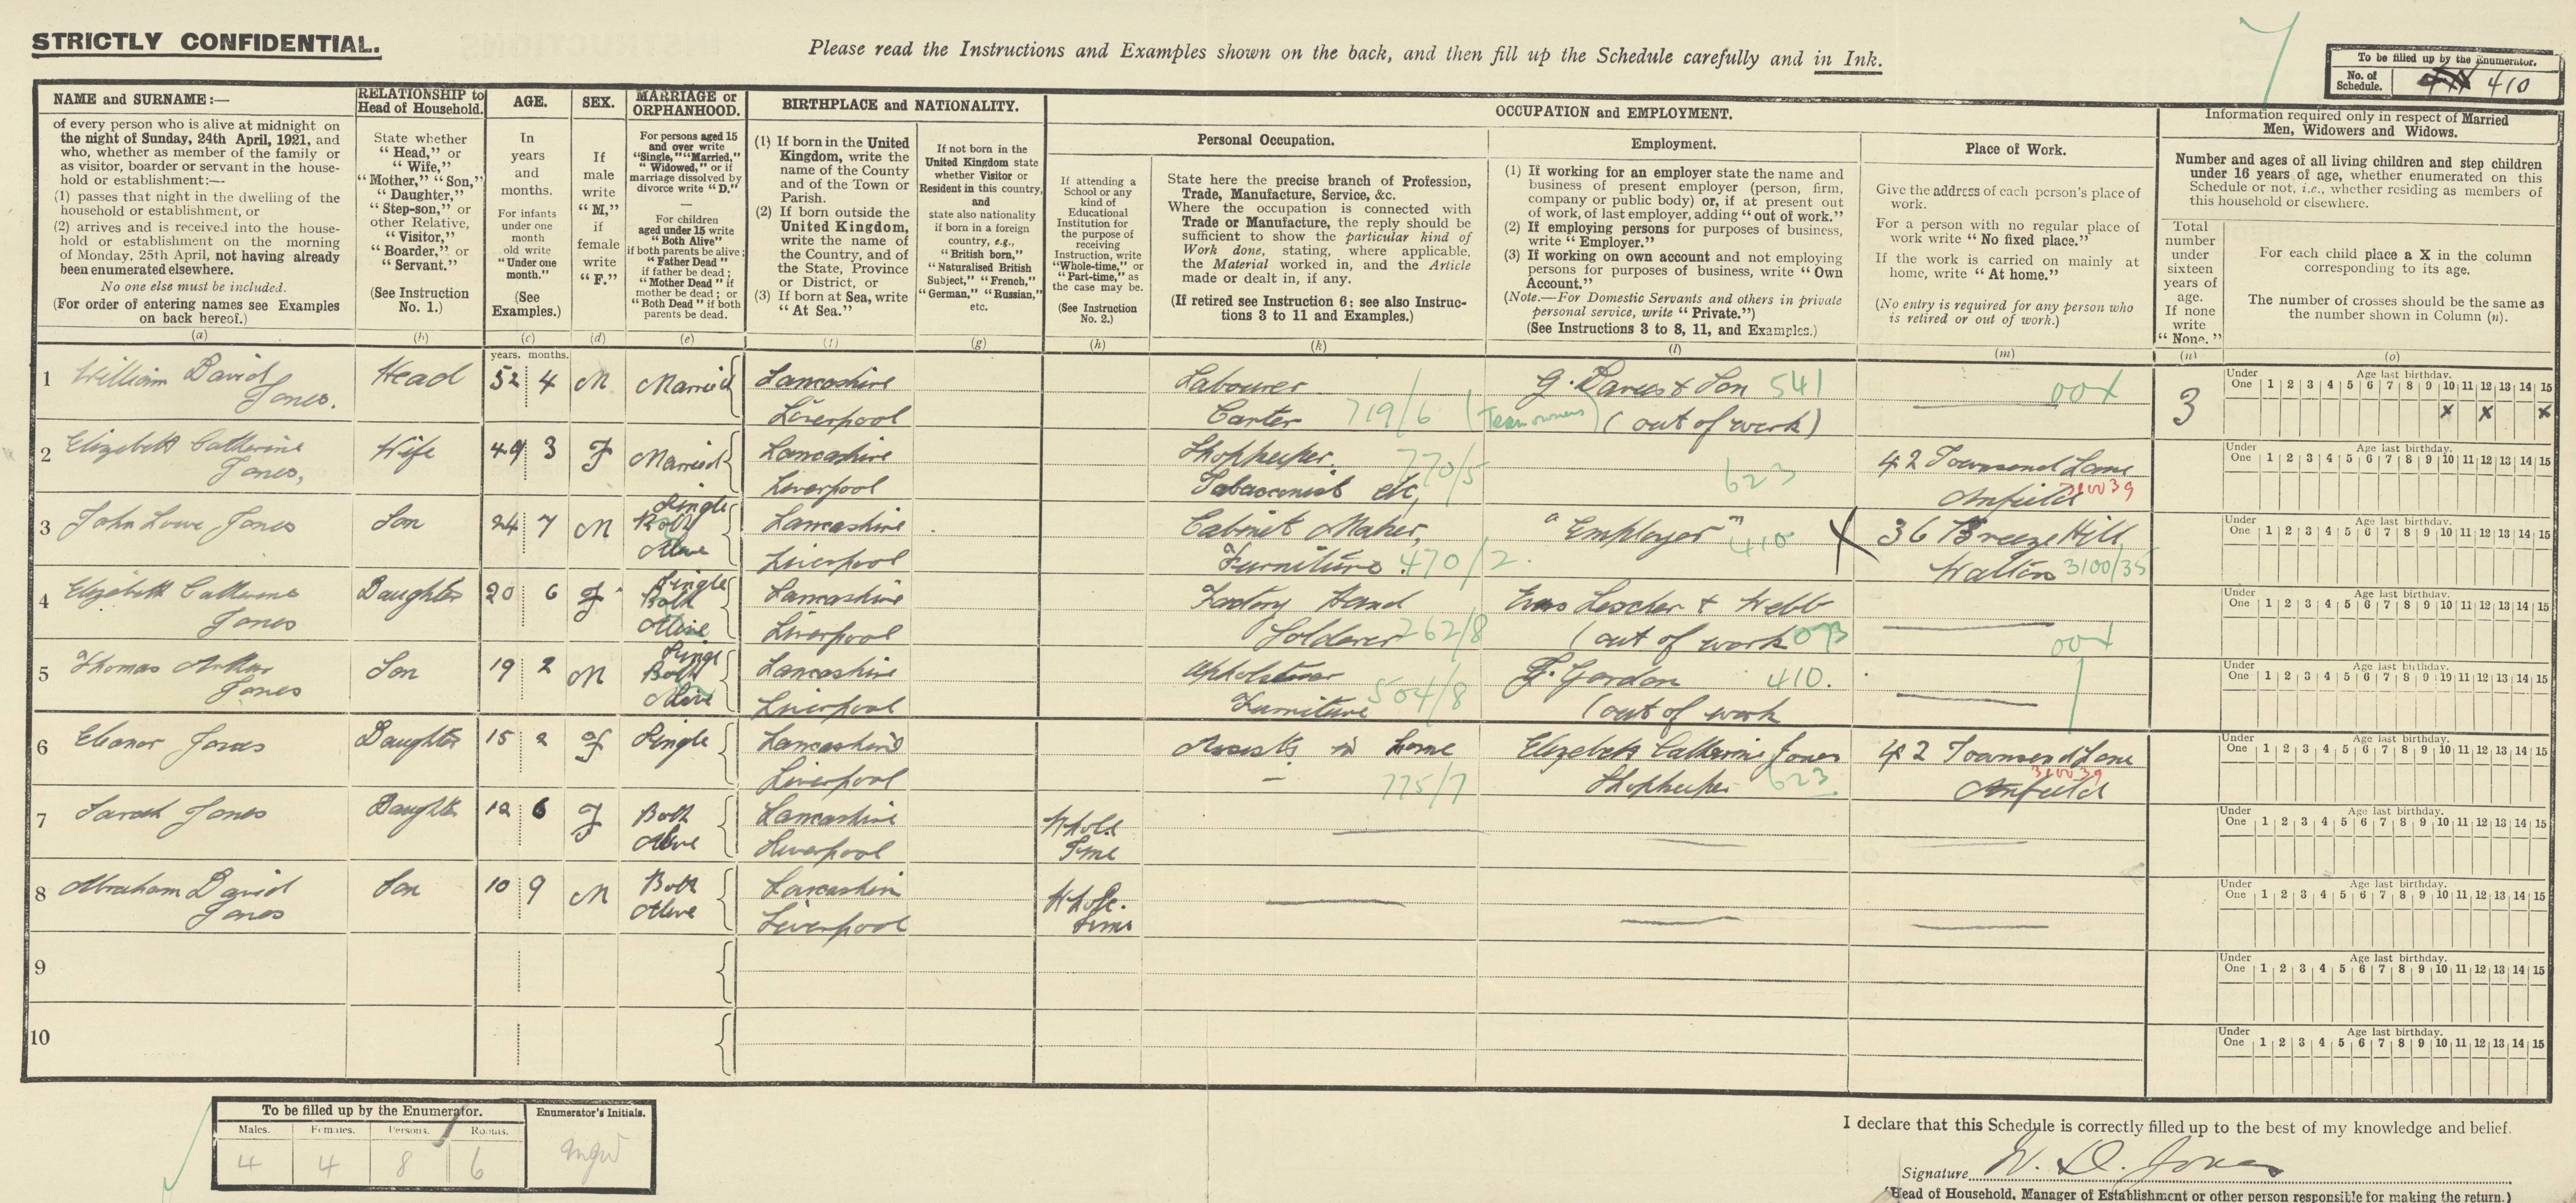 STRICTLY CONFIDENTIAL.
Please read the Instructions and Examples shown on the back, and then fill up the Schedule carefully and in Ink.
To be filled up by the Enumerator.
No. of Schedule. 410
NAME and SURNAME:—
of every person who is alive at midnight on
the night of Sunday, 24th April, 1921, and
who, whether as member of the family or
as visitor, boarder or servant in the house-
hold or establishment:—
(1) passes that night in the dwelling of the
household or establishment, or
(2) arrives and is received into the house-
hold or establishment on the morning
of Monday, 25th April, not having already
been enumerated elsewhere.
No one else must be included.
(For order of entering names see Examples
on back hereof.)
(a)
RELATIONSHIP to
Head of Household.
State whether
"Head," or
"Wife,"
"Mother," "Son,"
"Daughter,"
"Step-son," or
other Relative,
"Visitor,"
"Boarder," or
"Servant."
(See Instruction
No. 1.)
(b)
AGE.
In
years
and
months.
For infants
under one
month
old write
"Under one
month."
(See
Examples.)
(c)
SEX.
If
male
write
"M,"
if
female
write
"F."
(d)
MARRIAGE or
ORPHANHOOD.
For persons aged 15
and over write
"Single," "Married,"
"Widowed," or if
marriage dissolved by
divorce write "D."
—
For children
aged under 15 write
"Both Alive"
if both parents be alive;
"Father Dead"
if father be dead;
"Mother Dead" if
mother be dead; or
"Both Dead" if both
parents be dead.
(e)
BIRTHPLACE and NATIONALITY.
(1) If born in the United
Kingdom, write the
name of the County
and of the Town or
Parish.
(2) If born outside the
United Kingdom,
write the name of
the Country, and of
the State, Province
or District, or
(3) If born at Sea, write
"At Sea."
(f)
If not born in the
United Kingdom state
whether Visitor or
Resident in this country,
and
state also nationality
if born in a foreign
country, e.g.,
"British born,"
"Naturalised British
Subject," "French,"
"German," "Russian,"
etc.
(g)
OCCUPATION and EMPLOYMENT.
If attending a
School or any
kind of
Educational
Institution for
the purpose of
receiving
Instruction, write
"Whole-time," or
"Part-time," as
the case may be.
(See Instruction
No. 2.)
(h)
Personal Occupation.
State here the precise branch of Profession,
Trade, Manufacture, Service, &c.
Where the occupation is connected with
Trade or Manufacture, the reply should be
sufficient to show the particular kind of
Work done, stating, where applicable,
the Material worked in, and the Article
made or dealt in, if any.
(If retired see Instruction 6: see also Instruc-
tions 3 to 11 and Examples.)
(k)
Employment.
(1) If working for an employer state the name and
business of present employer (person, firm,
company or public body) or, if at present out
of work, of last employer, adding "out of work."
(2) If employing persons for purposes of business,
write "Employer."
(3) If working on own account and not employing
persons for purposes of business, write "Own
Account."
(Note.—For Domestic Servants and others in private
personal service, write "Private.")
(See Instructions 3 to 8, 11, and Examples.)
(l)
Place of Work.
Give the address of each person's place of
work.
For a person with no regular place of
work write "No fixed place."
If the work is carried on mainly at
home, write "At home."
(No entry is required for any person who
is retired or out of work.)
(m)
Information required only in respect of Married
Men, Widowers and Widows.
Number and ages of all living children and step children
under 16 years of age, whether enumerated on this
Schedule or not, i.e., whether residing as members of
this household or elsewhere.
Total
number
under
sixteen
years of
age.
If none
write
"None."
(n)
For each child place a X in the column
corresponding to its age.
The number of crosses should be the same as
the number shown in Column (n).
(o)
years. months.
1 William David Jones. Head 52 4 M Married Lancashire Liverpool Labourer Carter 719/6 (Team owners) G. Davies & Son 541 (out of work) 3
Under One Age last birthday. 1 2 3 4 5 6 7 8 9 10 11 12 13 14 15
x x x
2 Elizabeth Catherine Jones, Wife 49 3 F Married Lancashire Liverpool Shopkeeper. Tobacconist etc, 770/5 623 42 Townsend Lane Anfield
Under One Age last birthday. 1 2 3 4 5 6 7 8 9 10 11 12 13 14 15
3 John Lowe Jones Son 24 7 M Single Both Alive Lancashire Liverpool Cabinet Maker, Furniture 470/2 "Employer" 410 X 36 Breeze Hill Walton 3100/35
Under One Age last birthday. 1 2 3 4 5 6 7 8 9 10 11 12 13 14 15
4 Elizabeth Catherine Jones Daughter 20 6 F Single Both Alive Lancashire Liverpool Factory Hand Solderer 262/8 Evans Lescher & Webb (out of work 073
Under One Age last birthday. 1 2 3 4 5 6 7 8 9 10 11 12 13 14 15
5 Thomas Arthur Jones Son 19 2 M Single Both Alive Lancashire Liverpool Upholsterer Furniture 504/8 F. Gordon 410. (out of work
Under One Age last birthday. 1 2 3 4 5 6 7 8 9 10 11 12 13 14 15
6 Eleanor Jones Daughter 15 2 F Single Lancashire Liverpool Assists in home 775/7 Elizabeth Catherine Jones Shopkeeper 623 42 Townsend Lane Anfield
Under One Age last birthday. 1 2 3 4 5 6 7 8 9 10 11 12 13 14 15
7 Sarah Jones Daughter 12 6 F Both Alive Lancashire Liverpool Whole Time
Under One Age last birthday. 1 2 3 4 5 6 7 8 9 10 11 12 13 14 15
8 Abraham David Jones Son 10 9 M Both Alive Lancashire Liverpool Whole. time
Under One Age last birthday. 1 2 3 4 5 6 7 8 9 10 11 12 13 14 15
9
Under One Age last birthday. 1 2 3 4 5 6 7 8 9 10 11 12 13 14 15
10
Under One Age last birthday. 1 2 3 4 5 6 7 8 9 10 11 12 13 14 15
To be filled up by the Enumerator.
Enumerator's Initials.
Males. Females. Persons. Rooms.
4 4 8 6
I declare that this Schedule is correctly filled up to the best of my knowledge and belief.
Signature W. D. Jones
(Head of Household, Manager of Establishment or other person responsible for making the return.)